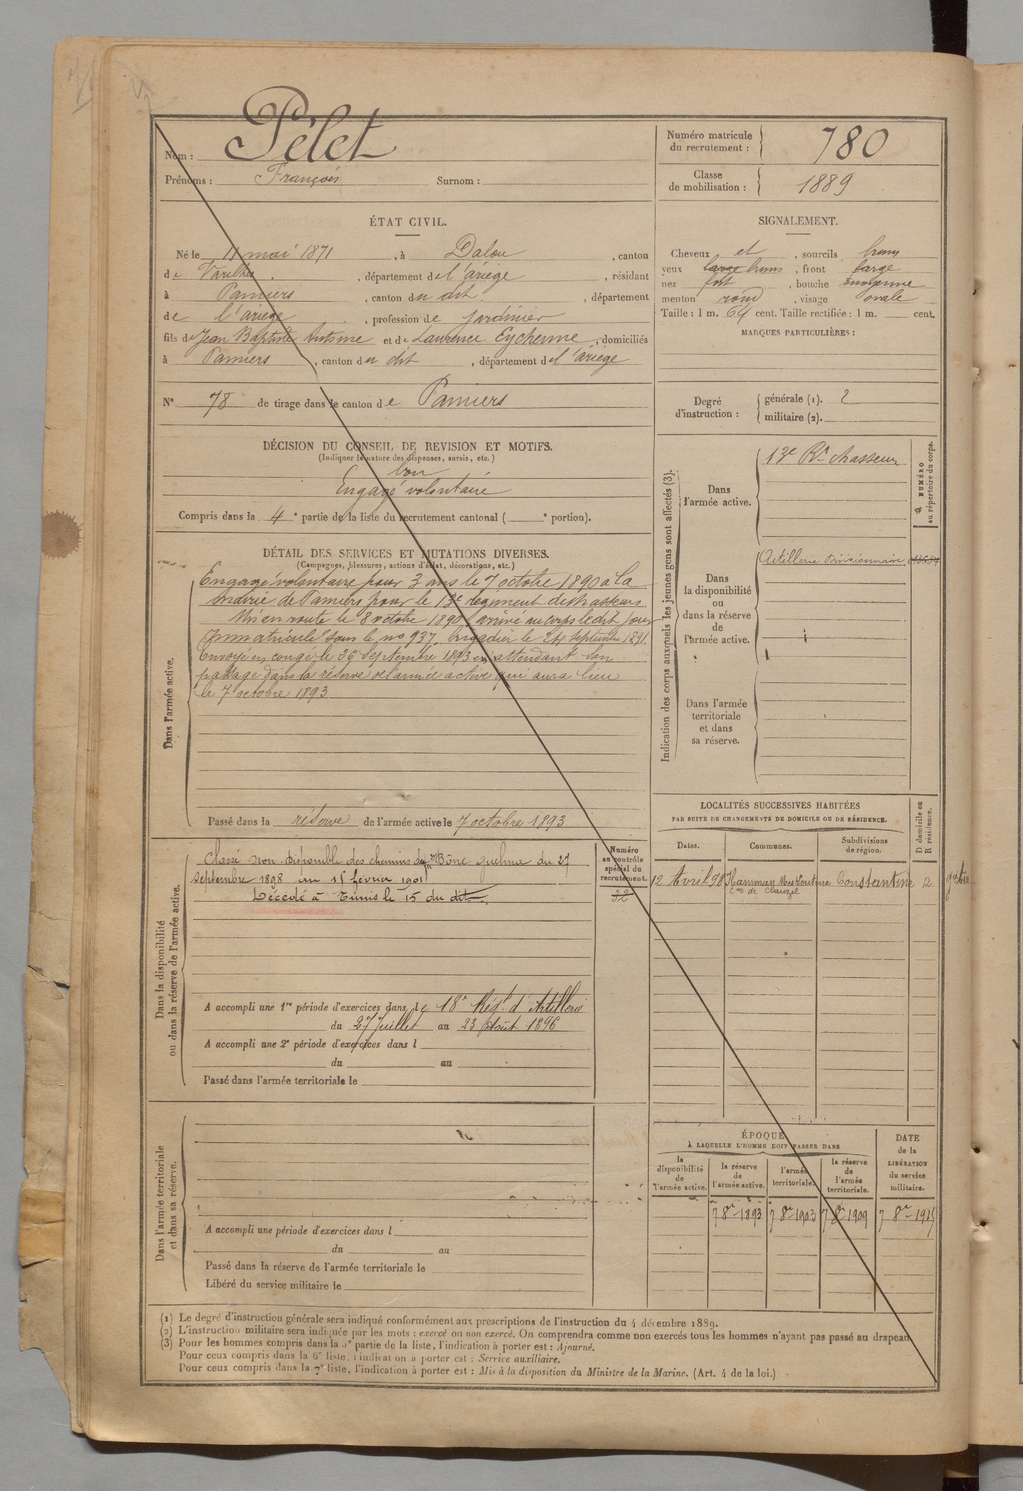 Nom : Pélet
Prénoms : François Surnom :
Numéro matricule du recrutement : 780
Classe de mobilisation : 1889
ÉTAT CIVIL.
Né le 11 mai 1871, à Dalou, canton
de Varilhes, département de l'ariège, résidant
à Pamiers, canton du dit, département
de l'ariège, profession de jardinier
fils de Jean Baptiste Antoine et de Laurence Eychenne, domiciliés
à Pamiers, canton du dit, département de l'ariège
N° 78 de tirage dans le canton de Pamiers
SIGNALEMENT.
Cheveux et, sourcils bruns
yeux, front large
nez fort, bouche moyenne
menton rond, visage ovale
Taille : 1 m. 64 cent. Taille rectifiée : 1 m. cent.
MARQUES PARTICULIÈRES :
Degré d'instruction : générale (1). 2
militaire (2).
DÉCISION DU CONSEIL DE REVISION ET MOTIFS.
(Indiquer la nature des dispenses, sursis, etc.)
bon
Engagé volontaire
Compris dans la 4e partie de la liste du recrutement cantonal ( e portion).
DÉTAIL DES SERVICES ET MUTATIONS DIVERSES.
(Campagnes, blessures, actions d'éclat, décorations, etc.)
Dans l'armée active.
Engagé volontaire pour 3 ans le 7 octobre 1890 à la
mairie de Pamiers pour le 13e régiment de chasseurs
Mis en route le 8 octobre 1890, arrivé au corps le dit jour
Immatriculé sous le no 937, brigadier le 24 septembre 1891.
Envoyé en congé le 26 septembre 1893 en attendant son
passage dans la réserve de l'armée active qui aura lieu
le 7 octobre 1893
Passé dans la réserve de l'armée active le 7 octobre 1893
Indication des corps auxquels les jeunes gens sont affectés (3).
NUMÉRO au répertoire du corps.
Dans l'armée active.
13e Rt chasseurs
Dans la disponibilité ou dans la réserve de l'armée active.
Artillerie Divisionnaire
Dans l'armée territoriale et dans sa réserve.
LOCALITÉS SUCCESSIVES HABITÉES
PAR SUITE DE CHANGEMENTS DE DOMICILE OU DE RÉSIDENCE.
Dates. Communes. Subdivisions de région. D domicile ou R résidence.
12 Avril 98 Hammam Meskoutine Constantine R
Cne de Clauzel
Dans la disponibilité ou dans la réserve de l'armée active.
Numéro au contrôle spécial du recrutement.
32
Classé non disponible des chemins de fer Bône guelma du 27
septembre 1898 au 15 février 1901
Décédé à Tunis le 15 du dit.
A accompli une 1re période d'exercices dans le 18e Régt d'Artillerie
du 27 Juillet au 23 Août 1896
A accompli une 2e période d'exercices dans l
du au
Passé dans l'armée territoriale le
Dans l'armée territoriale et dans sa réserve.
A accompli une période d'exercices dans l
du au
Passé dans la réserve de l'armée territoriale le
Libéré du service militaire le
ÉPOQUE
À LAQUELLE L'HOMME DOIT PASSER DANS
la disponibilité de l'armée active. la réserve de l'armée active. l'armée territoriale. la réserve de l'armée territoriale. DATE de la LIBÉRATION du service militaire.
7 8bre 1893 7 8bre 1903 7 8bre 1909 7 8bre 1915
(1) Le degré d'instruction générale sera indiqué conformément aux prescriptions de l'instruction du 4 décembre 1889.
(2) L'instruction militaire sera indiquée par les mots : exercé ou non exercé. On comprendra comme non exercés tous les hommes n'ayant pas passé au drapeau.
(3) Pour les hommes compris dans la 5e partie de la liste, l'indication à porter est : Ajourné.
Pour ceux compris dans la 6e liste, l'indication à porter est : Service auxiliaire.
Pour ceux compris dans la 7e liste, l'indication à porter est : Mis à la disposition du Ministre de la Marine. (Art. 4 de la loi.)